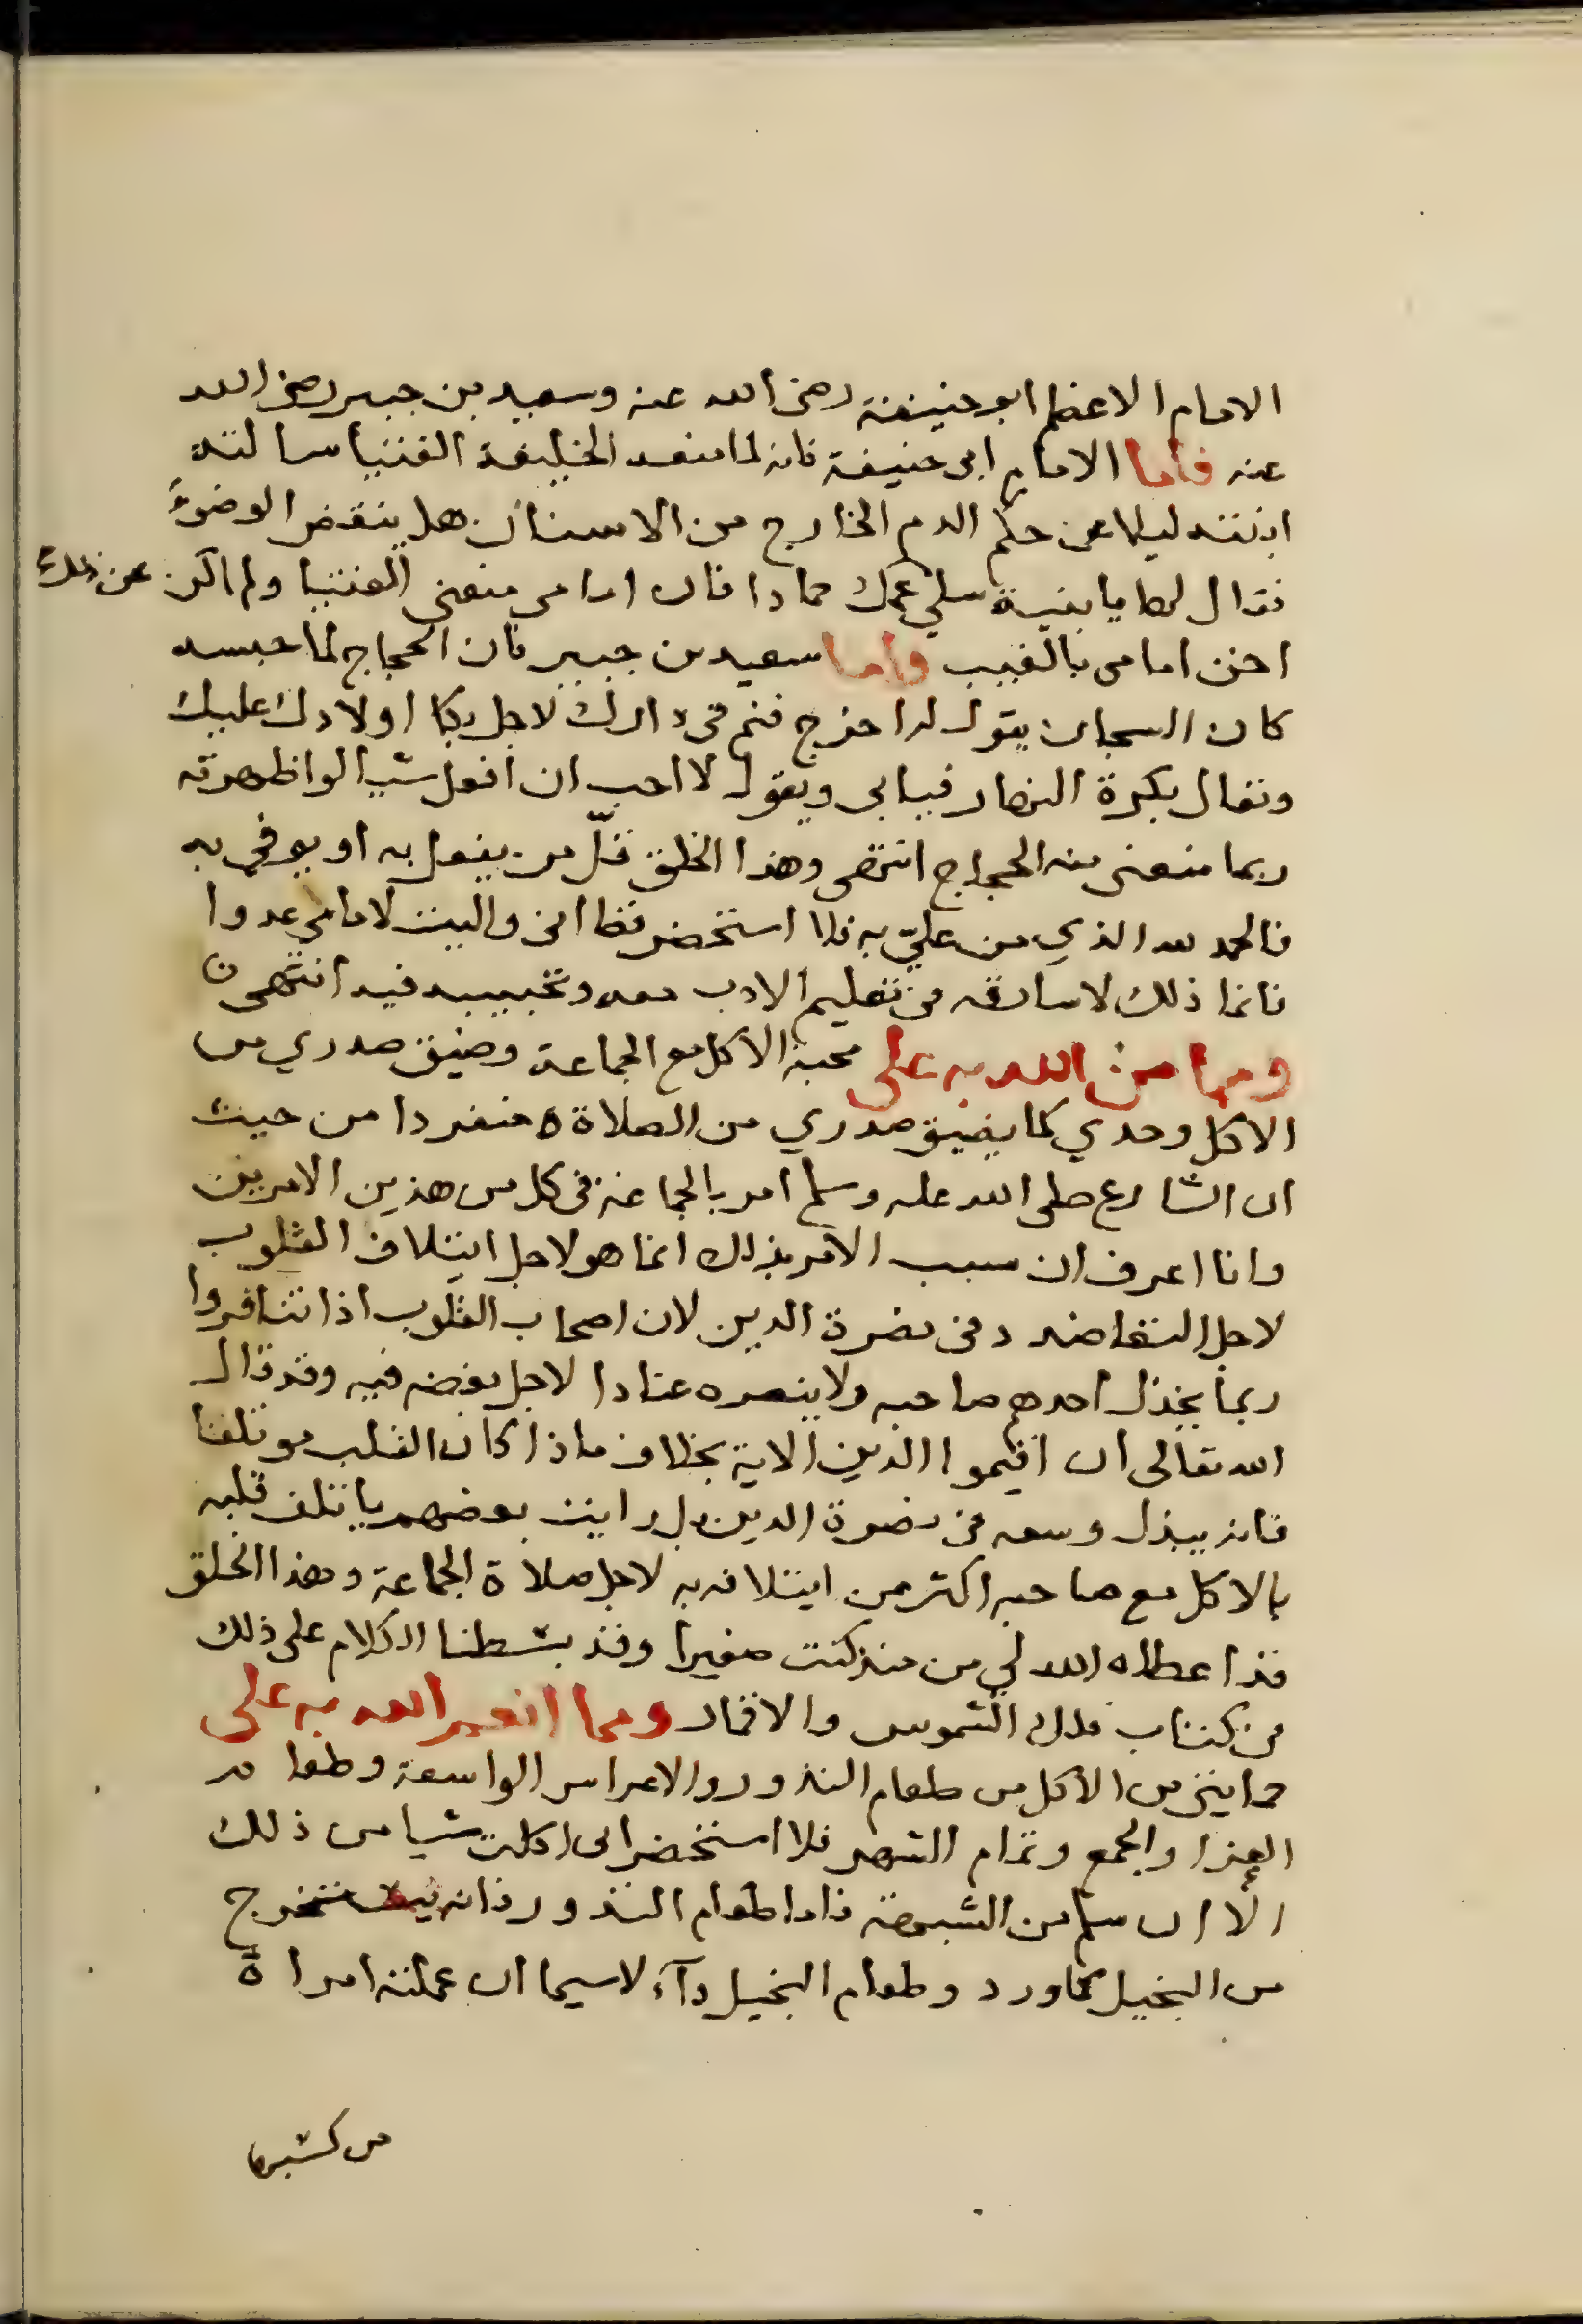 الامام الاعظم ابو حنيفة رضى الله عنه وسعيد بن جبير رضى الله
عنه فاما الامام ابى حنيفة فانه لما منعه الخليفة الفتيا سالته
ابنته ليلا عن حكم الدم الخارج من الاسنان هل ينقض الوضوء
فقال لها يا بنية سلي عمك حمادا فان امامى منعنى الفتيا ولم اكن عن ذلك
اخن امامى بالغيب واما سعيد بن جبير فان الحجاج لما حبسه
كان السجان يقول له اخرج فنم فى دارك لاجل بكا اولادك عليك
وتعال بكرة النهار فيابى ويقول لا احب ان افعل شيا لو اظهرته
ربما منعنى منه الحجاج انتهى وهذا الخلق قلّ من يفعل به او يوفى به
فالحمد لله الذي من عليّ به فلا استحضر قط انى واليت لامامي عدوا
فانما ذلك لاسارقه فى تعليم الادب معه وتحبيبه فيه انتهى
ومما من الله به على محبة الاكل مع الجماعة وضيق صدري من
الاكل وحدي كما يضيق صدري من الصلاة منفردا من حيث
ان الشارع صلى الله عليه وسلم امر بالجماعة فى كل من هذين الامرين
وانا اعرف ان سبب الامر بذلك انما هو لاجل ايتلاف القلوب
لاجل التعاضد فى نصرة الدين لان اصحاب القلوب اذا تنافروا
ربما يخذل احدهم صاحبه ولا ينصره عنادا لاجل بغضه فيه وقد قال
الله تعالى ان اقيموا الدين الاية بخلاف ماذا كان القلب موتلفا
فانه يبذل وسعه فى نصرة الدين بل رايت بعضهم ياتلف قلبه
بالاكل مع صاحبه اكثر من ايتلافه به لاجل صلاة الجماعة وهذا الخلق
قد اعطاه الله لي من منذ كنت صغيرا وقد بسطنا الكلام على ذلك
فى كتاب فلك الشموس والاقمار ومما انعم الله به على
حمايتى من الاكل من طعام النذور والاعراس الواسعة وطعام
العزا والجمع وتمام الشهر فلا استحضر انى اكلت شيا من ذلك
الّا ان سلم من الشبهة فاما طعام النذور فانه يستخرج
من البخيل كما ورد وطعام البخيل دآء لاسيما ان عملته امراة
من كسبها